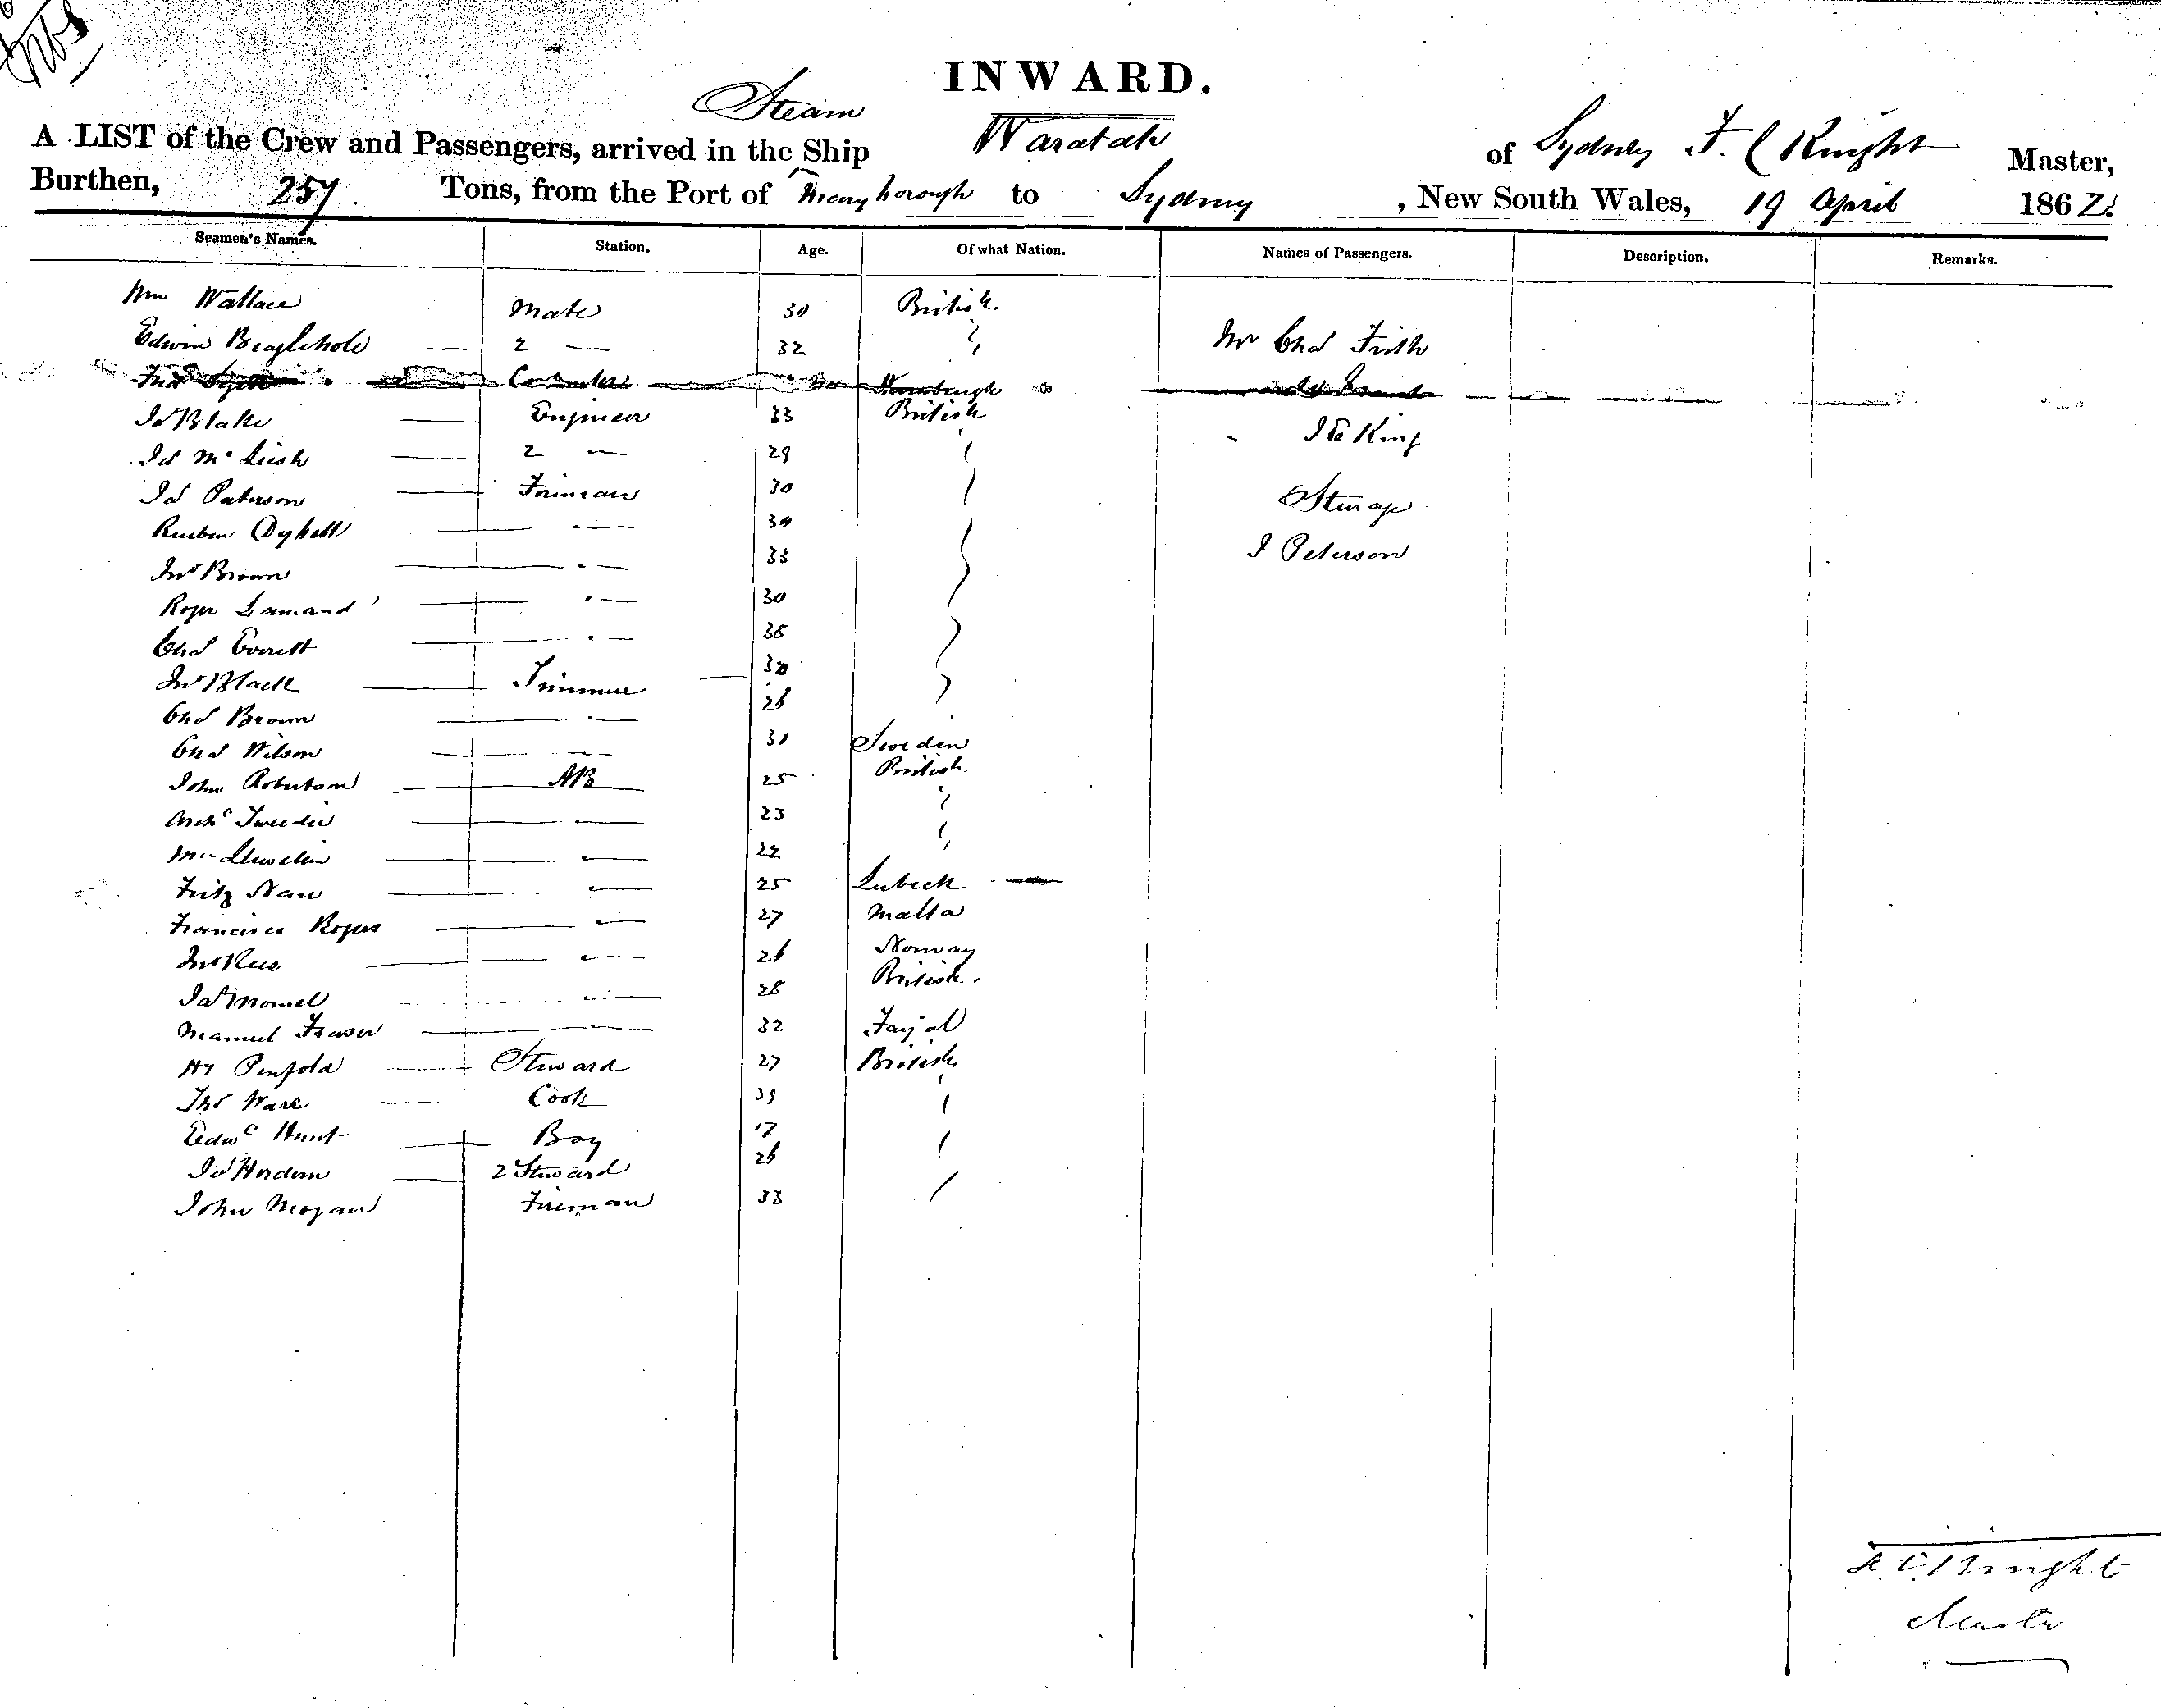 INWARD.
A LIST of the Crew and Passengers, arrived in the Steam Ship Waratah of Sydney F. C Knight Master,
Burthen, 257 Tons, from the Port of Maryborough to Sydney, New South Wales, 19 April 1862.
Seamen's Names. Station. Age. Of what Nation. Names of Passengers. Description. Remarks.
Wm Wallace Mate 30 British
Edwin Beaglehole — 2 — 32 " Mr Chas Frith
Js Blake — Engineer 33 British
Js McLeish — 2 — 29 " J E King
Js Paterson — Fireman 30
Reuben — " — 30
Jno Brown — " — 33 J Peterson
Roger — " — 30
Chas Everett — " — 38
Jno Black — Trimmer — 30
Chas Brown — — 26
Chas Wilson — — 30 Sweden
John Robertson — AB 25 British
Archd Tweedie — — 23 "
Wm Llewelin — " — 22 "
Fritz Nau — " — 25 Lubeck
Francisco Rogers — " — 27 Malta
Jno — " — 26 Norway
Jas — " — 28 British.
Manuel Fraser — " — 32 Fayal
Hy Penfold — Steward 27 British
Thos Ware — Cook 39 "
Edwd Hunt — Boy 17 "
Js Hordern — 2 Steward 26
John Mogan Fireman 33 "
F. C. Knight
Master